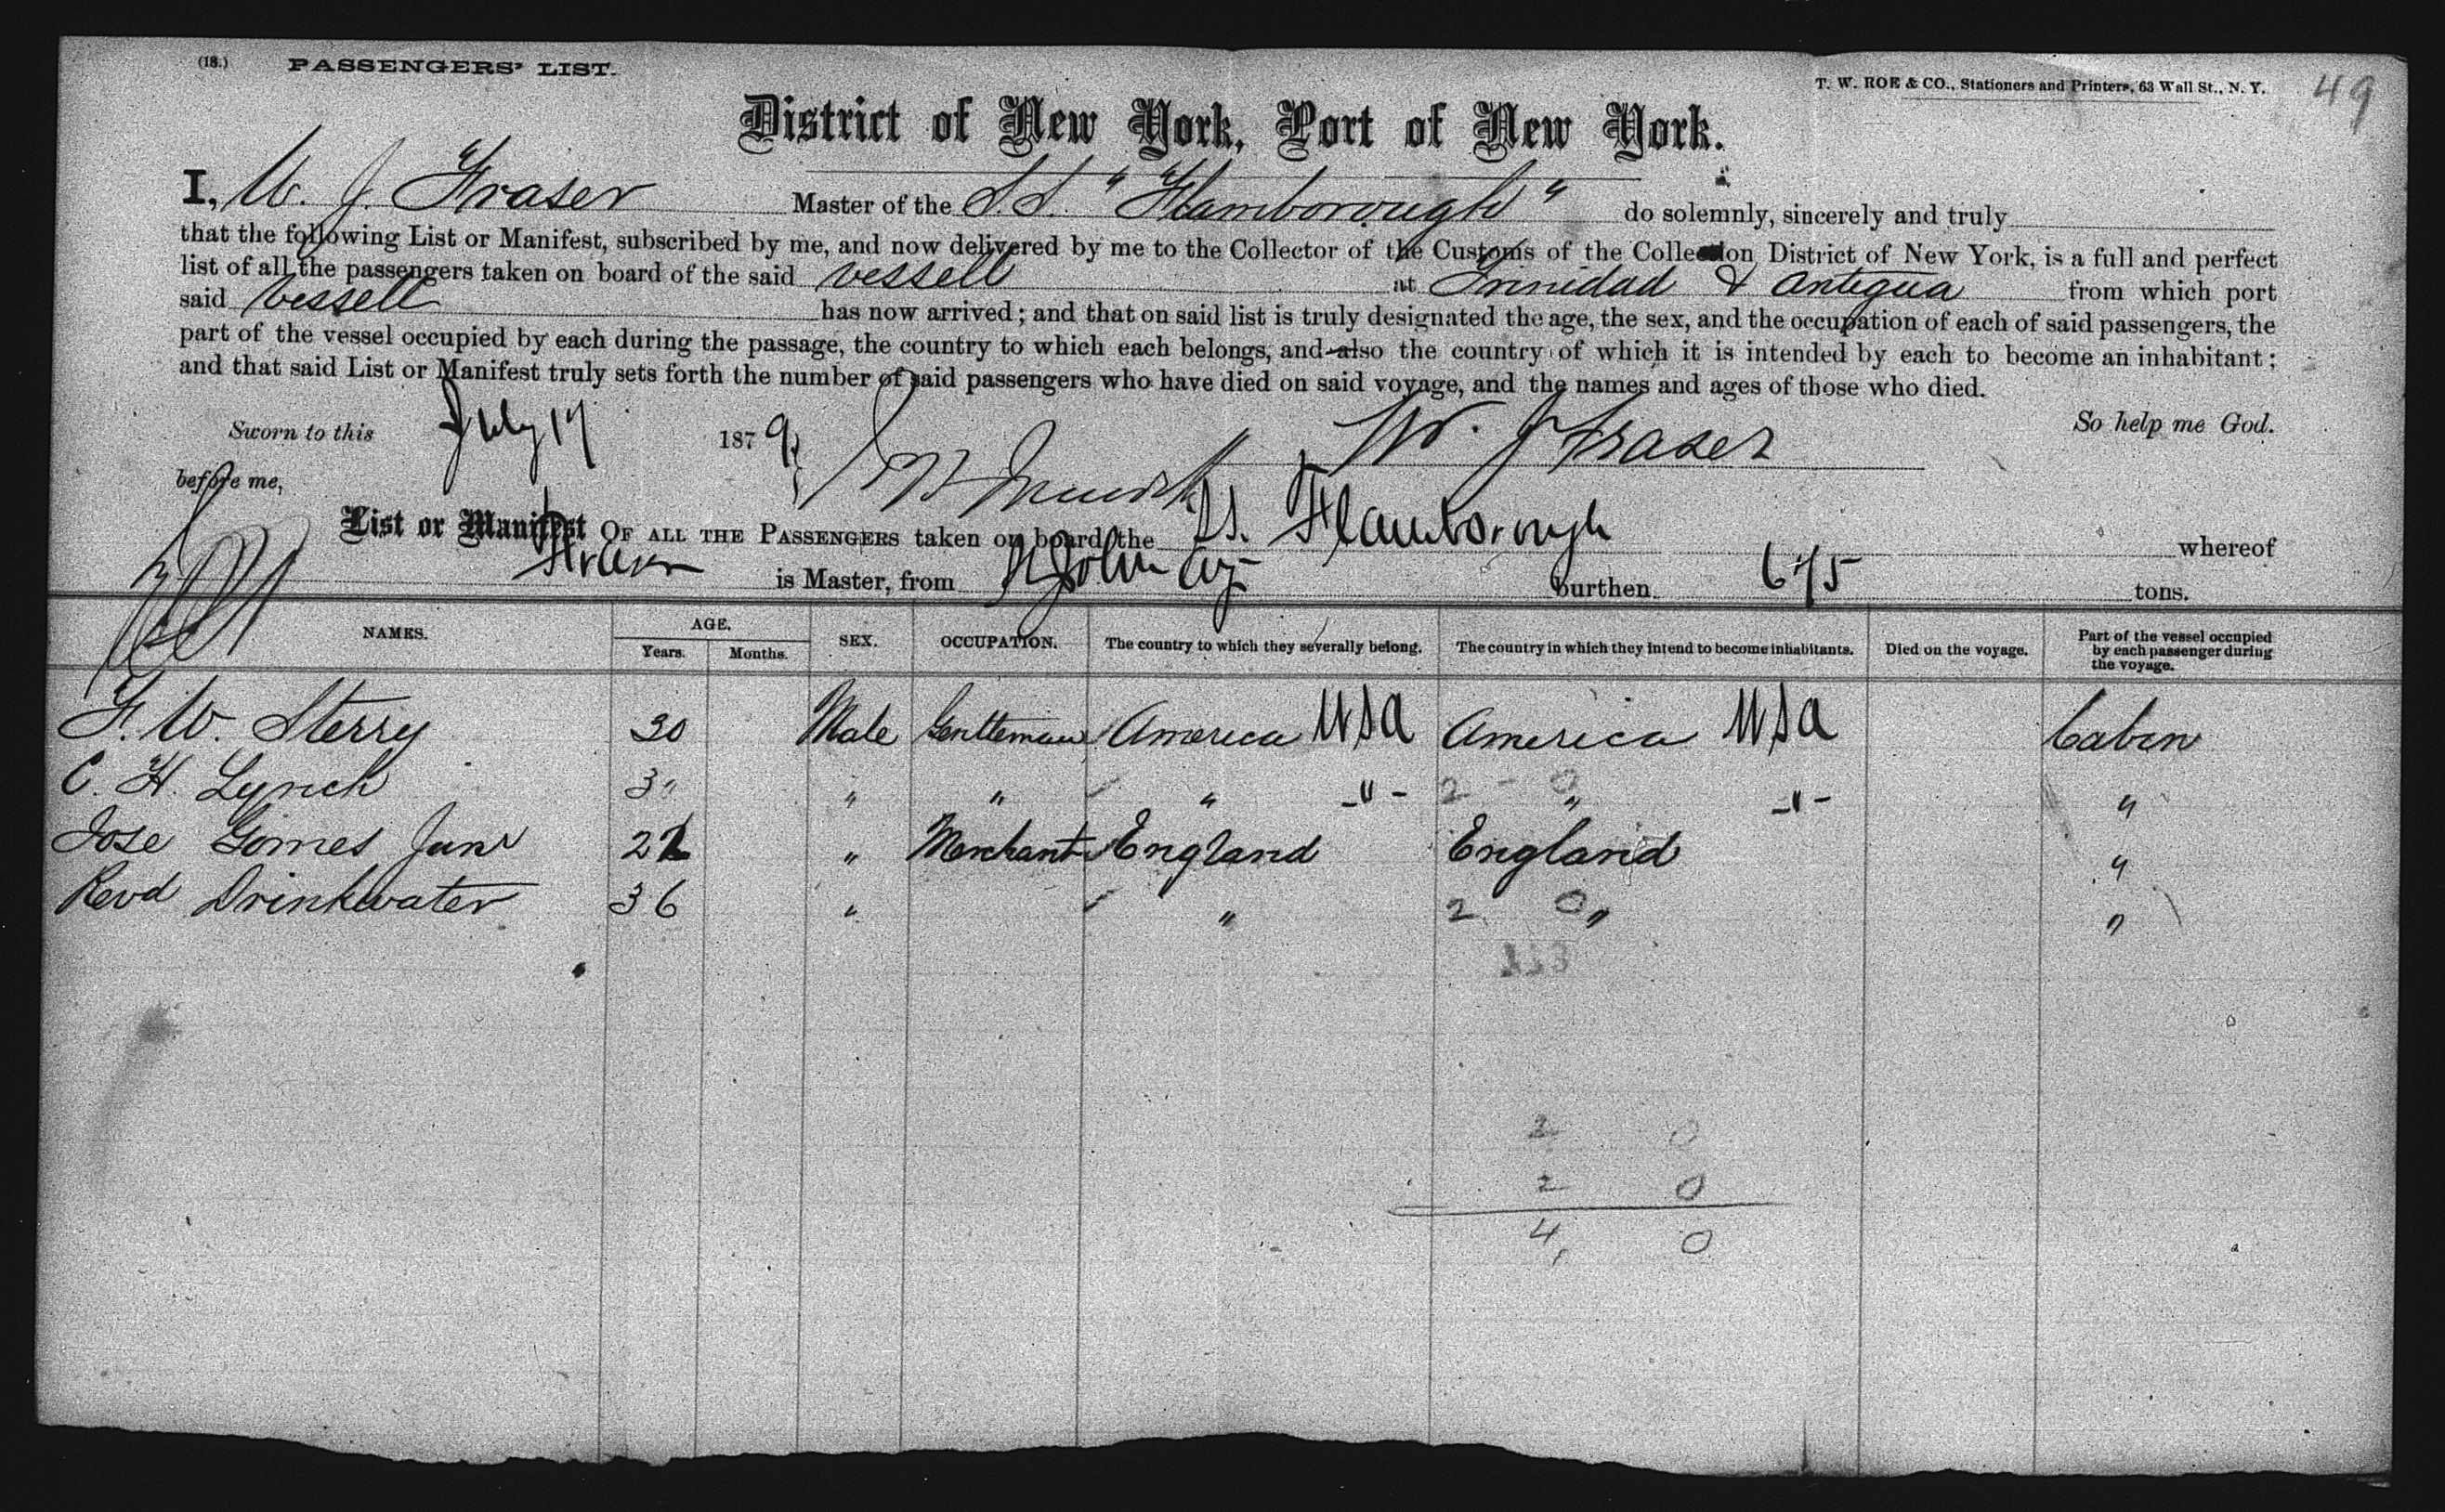 (18.) PASSENGERS' LIST.
T. W. ROE & CO., Stationers and Printers, 63 Wall St., N. Y. 49
District of New York, Port of New York.
I, W. J. Fraser Master of the S.S. "Flamborough" do solemnly, sincerely and truly
that the following List or Manifest, subscribed by me, and now delivered by me to the Collector of the Customs of the Collection District of New York, is a full and perfect
list of all the passengers taken on board of the said vessell at Trinidad & Antigua from which port
said vessell has now arrived; and that on said list is truly designated the age, the sex, and the occupation of each of said passengers, the
part of the vessel occupied by each during the passage, the country to which each belongs, and also the country of which it is intended by each to become an inhabitant;
and that said List or Manifest truly sets forth the number of said passengers who have died on said voyage, and the names and ages of those who died.
Sworn to this July 17 1879 W. J Fraser So help me God.
before me,
List or Manifest OF ALL THE PASSENGERS taken on board the SS. Flamborough whereof
Fraser is Master, from burthen 675 tons.
NAMES. AGE. Years. Months. SEX. OCCUPATION. The country to which they severally belong. The country in which they intend to become inhabitants. Died on the voyage. Part of the vessel occupied by each passenger during the voyage.
F. W. Sterry 30 Male Gentleman America USA America USA Cabin
C. H. Lynch 3" " " " -"- 2 - 0 " -"- "
Jose Gomes Junr 22 " Merchant England England "
Revd Drinkwater 36 " " 2 0 " "
2 0
2 0
4 0